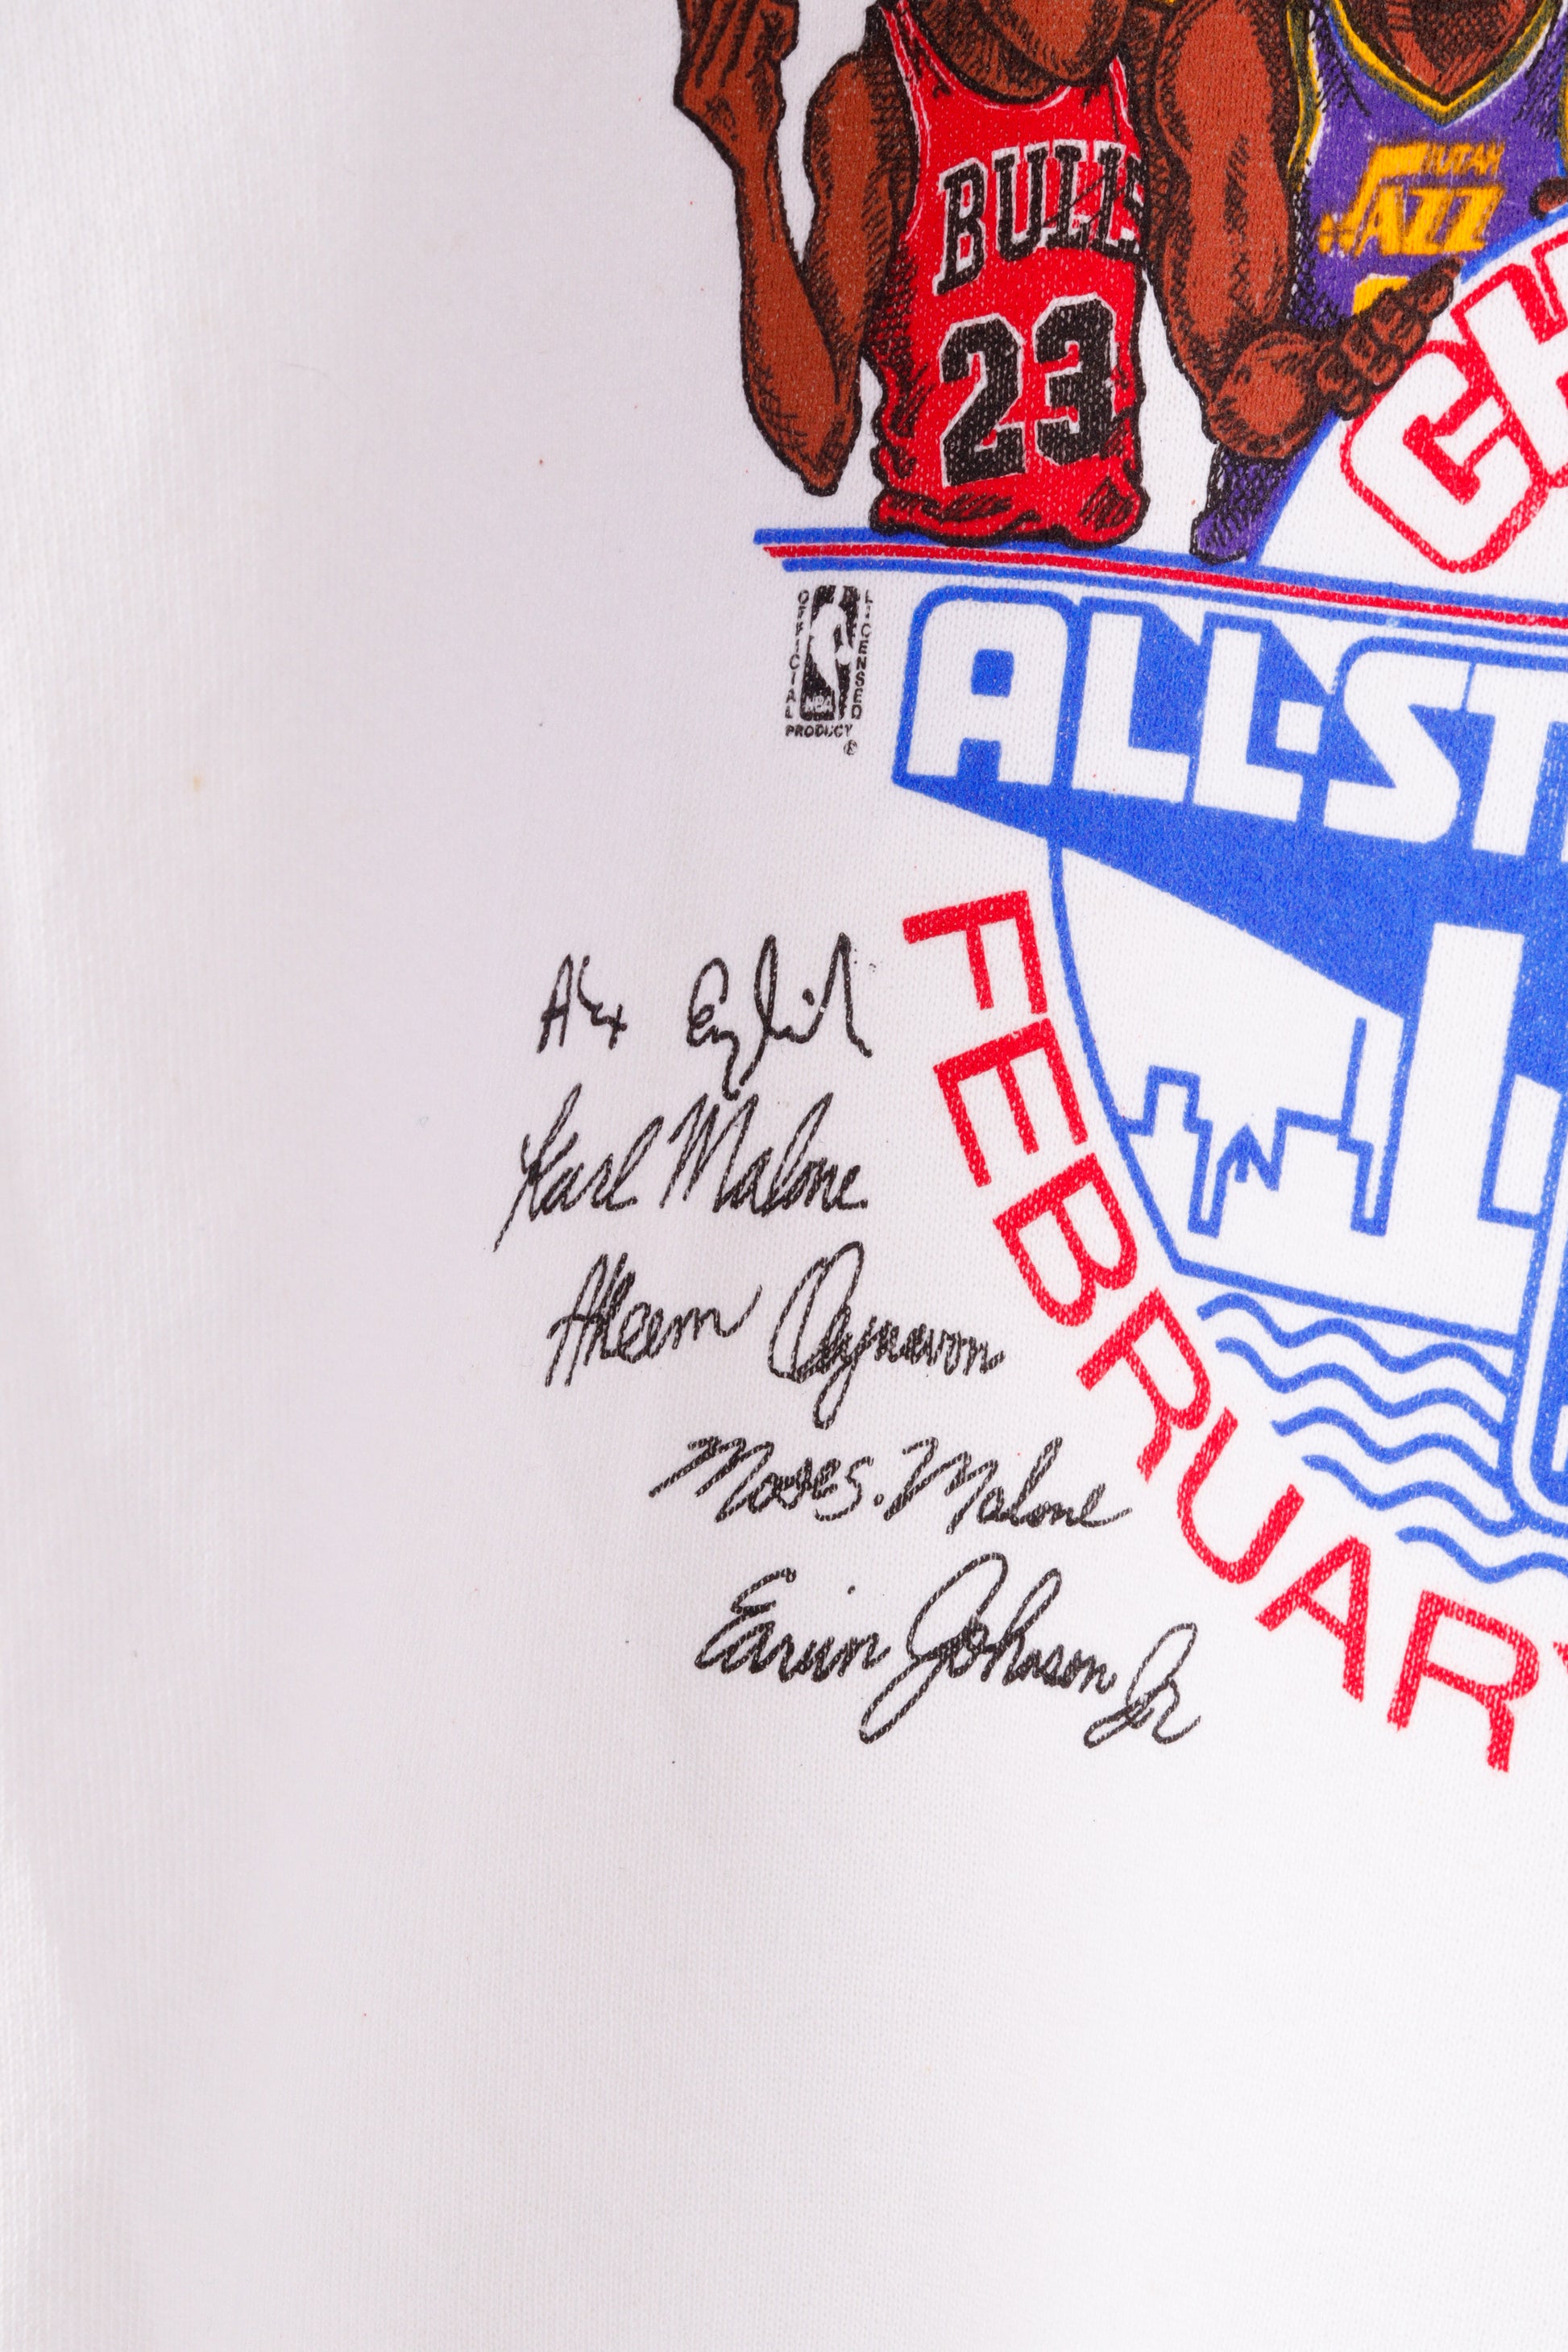 UTAH
JAZZ
BULLS
23
CH
OFFICIAL LICENSED
NBA
PRODUCT
®
ALL-ST
FEBRUARY
Alex English
Karl Malone
Akeem Olajuwon
Moses Malone
Earvin Johnson Jr